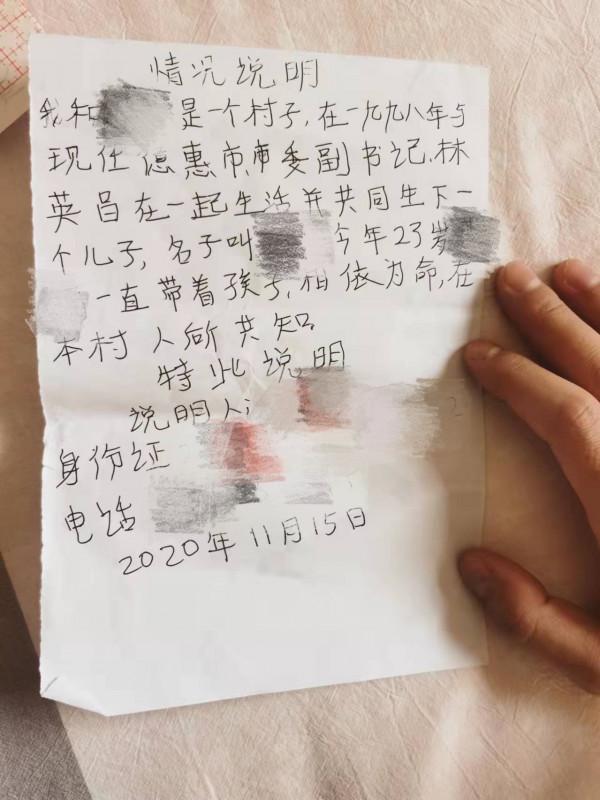 情况说明
我和 是一个村子,在一九九八年与
现任德惠市市委副书记林
英昌在一起生活并共同生下一
个儿子,名子叫 今年23岁
一直带着孩子,相依为命,在
本村人所共知
特此说明
说明人:
身份证
电话
2020年11月15日